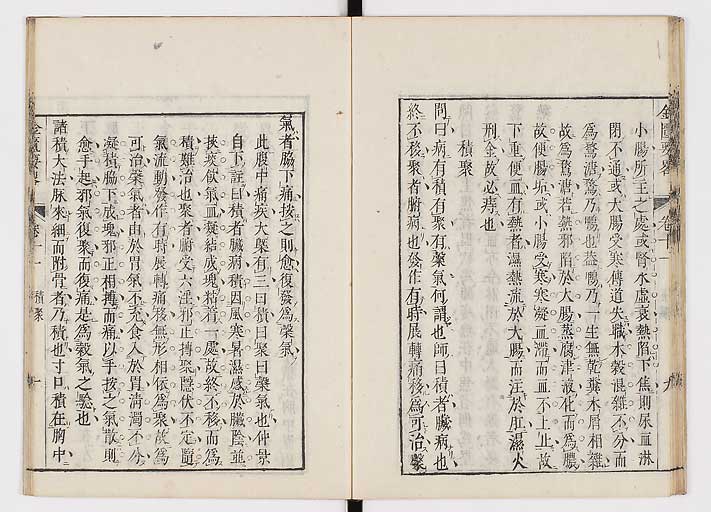 金匱要畧 卷十一
小腸所主之處或腎水虛衰熱陷下焦則尿血淋
閉不通或大腸受寒傳道失職水穀混雜不分而
為鶩溏鶩乃鴨也盖鴨乃一生無乾糞水屑相雜
故為鶩溏若熱邪陷於大腸蒸腐津液化而為膿
故便腸垢或小腸受寒寒凝血滯而血不上止故
下重便血有熱者濕熱流於大腸而注於肛濕火
刑金故必痔也
積聚
問曰病有積有聚有䅽氣何謂也師曰積者臟病也
終不移聚者腑病也發作有時展轉痛移為可治䅽
氣者脇下痛按之則愈復發為䅽氣
此腹中痛疾大槩有三曰積曰聚曰䅽氣也仲景
自下註曰積者臟病積因風寒暑濕感於臟陰並
挾痰飲氣血凝結成塊積着一處故終不移而為
積難治也聚者腑受六淫邪正搏聚隱伏不定隨
氣流動發作有時展轉痛移無形相依為聚故為
可治䅽氣者由於胃氣不充食入於胃清濁不分
凝積脇下成塊邪正相搏而痛以手按之氣散則
愈手起邪氣復聚而復痛是為穀氣之騐也
諸積大法脉來細而附骨者乃積也寸口積在胸中
金匱要畧 卷十一 積聚 一